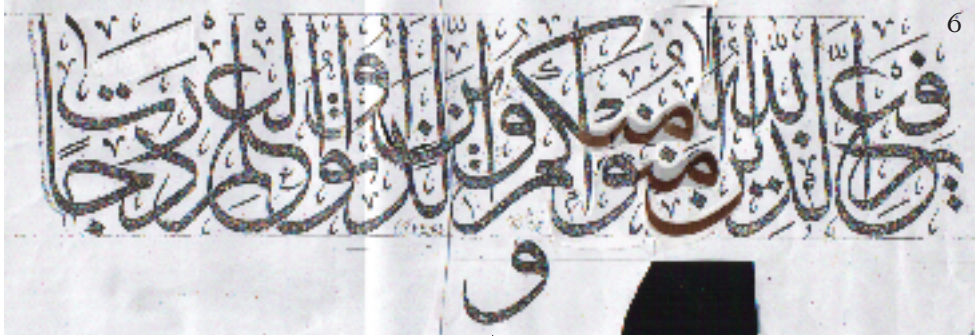 6
يرفع الله الذين آمنوا منكم والذين أوتوا العلم درجات
و